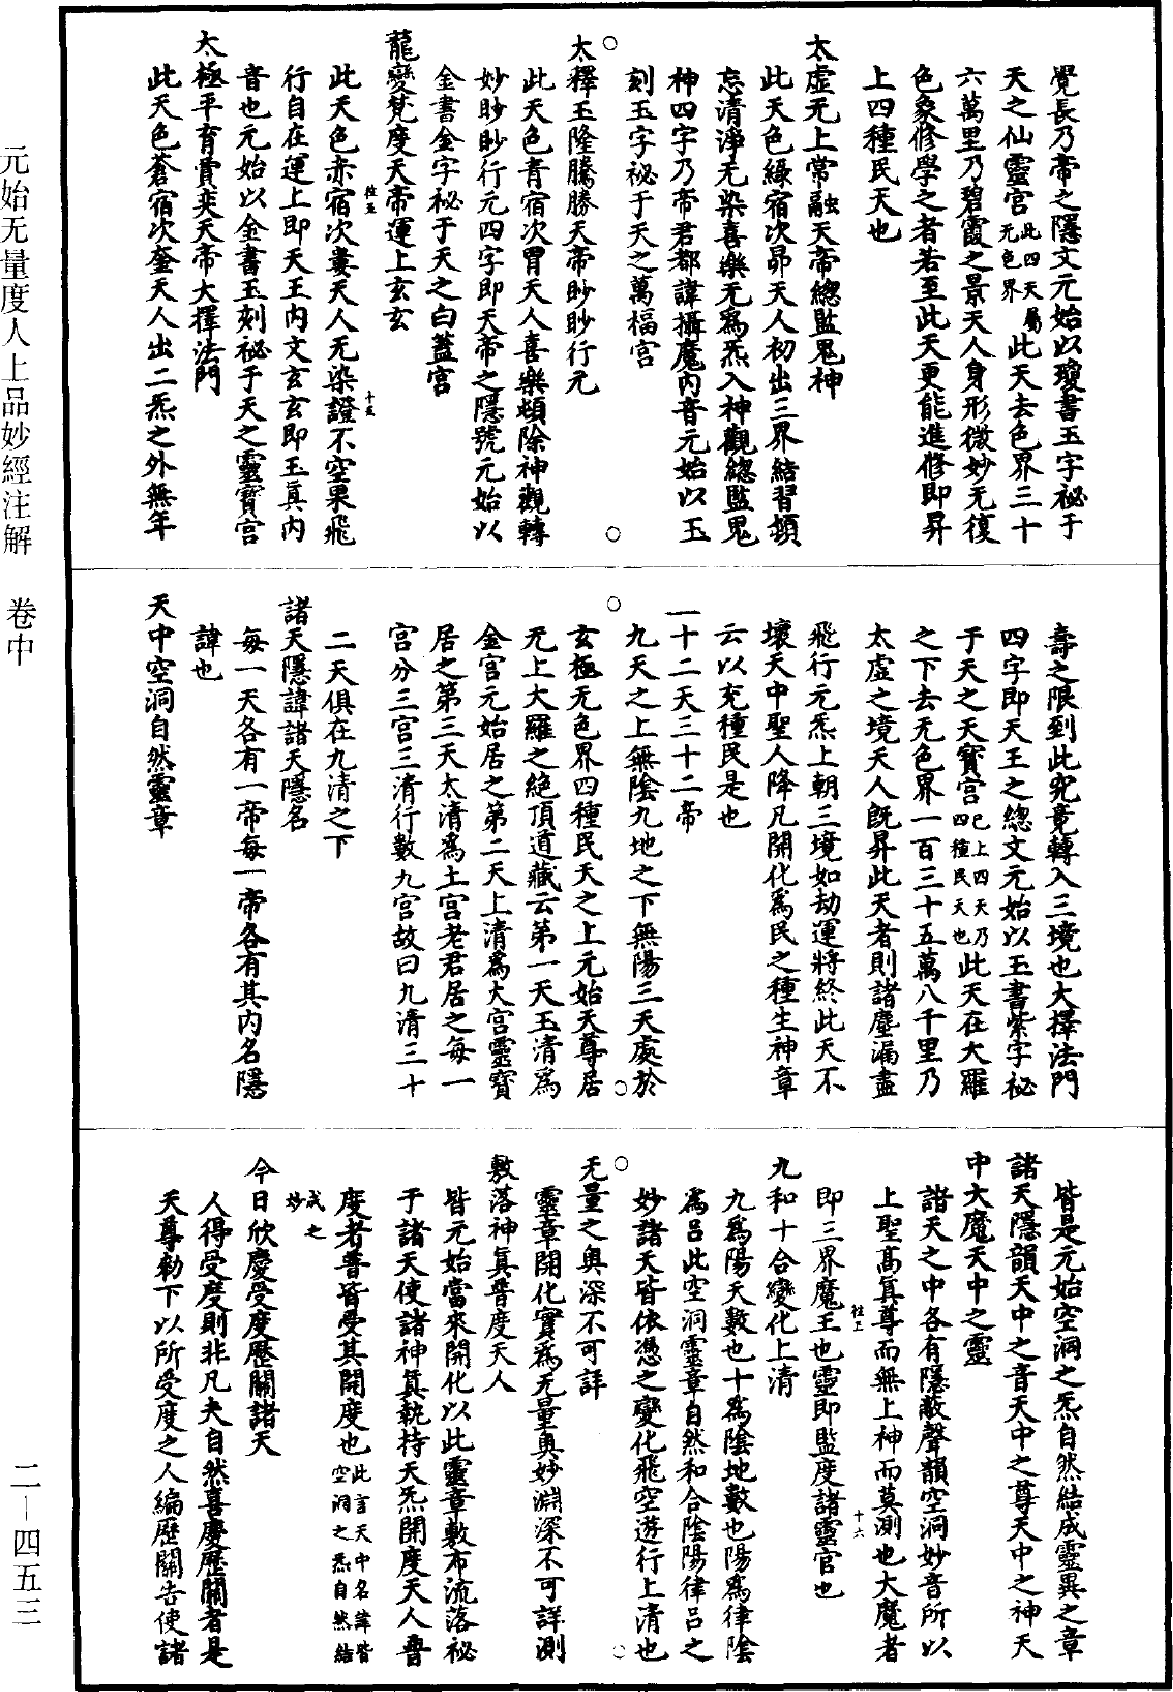 覺長乃帝之隱文元始以瓊書玉字祕于
天之仙靈宮此四天屬无色界此天去色界三十
六萬里乃碧霞之景天人身形微妙无復
色象修學之者若至此天更能進修即昇
上四種民天也
太虛无上常融天帝總監鬼神
此天色綠宿次昴天人初出三界結習頓
忘清淨无染喜樂无為炁入神觀總監鬼
神四字乃帝君都諱攝魔內音元始以玉
刻玉字祕于天之萬福宮
太釋玉隆騰勝天帝眇眇行元
此天色青宿次胃天人喜樂頓除神觀轉
妙眇眇行元四字即天帝之隱號元始以
金書金字祕于天之白蓋宮
龍變梵度天帝運上玄玄
此天色赤宿次婁天人无染證不空果飛
行自在運上即天王內文玄玄即玉真內
音也元始以金書玉刻祕于天之靈寶宮
太極平育賈奕天帝大擇法門
此天色蒼宿次奎天人出二炁之外無年
壽之限到此究竟轉入三境也大擇法門
四字即天王之總文元始以玉書紫字祕
于天之天寶宮已上四天乃四種民天也此天在大羅
之下去无色界一百三十五萬八千里乃
太虛之境天人旣昇此天者則諸塵漏盡
飛行元炁上朝三境如劫運將終此天不
壞天中聖人降凡開化為民之種生神章
云以充種民是也
一十二天三十二帝
九天之上無陰九地之下無陽三天處於
玄極无色界四種民天之上元始天尊居
无上大羅之絕頂道藏云第一天玉清為
金宮元始居之第二天上清為大宮靈寶
居之第三天太清為土宮老君居之每一
宮分三宮三清行數九宮故曰九清三十
二天俱在九清之下
諸天隱諱諸天隱名
每一天各有一帝每一帝各有其內名隱
諱也
天中空洞自然靈章
皆是元始空洞之炁自然結成靈異之章
諸天隱韻天中之音天中之尊天中之神天
中大魔天中之靈
諸天之中各有隱敵聲韻空洞妙音所以
上聖高真尊而無上神而莫測也大魔者
即三界魔王也靈即監度諸靈官也
九和十合變化上清
九為陽天數也十為陰地數也陽為律陰
為呂此空洞靈章自然和合陰陽律呂之
妙諸天皆依憑之變化飛空遊行上清也
无量之奥深不可詳
靈章開化實為无量奥妙淵深不可詳測
敷落神真普度天人
皆元始當來開化以此靈章敷布流落祕
于諸天使諸神真執持天炁開度天人普
度者普皆受其開度也此言天中名諱皆空洞之炁自然結
成之妙
今日欣慶受度歷關諸天
人得受度則非凡夫自然喜慶歷關者是
天尊勑下以所受度之人編歷關告使諸
元始无量度人上品妙經注解　卷中
二—四五三